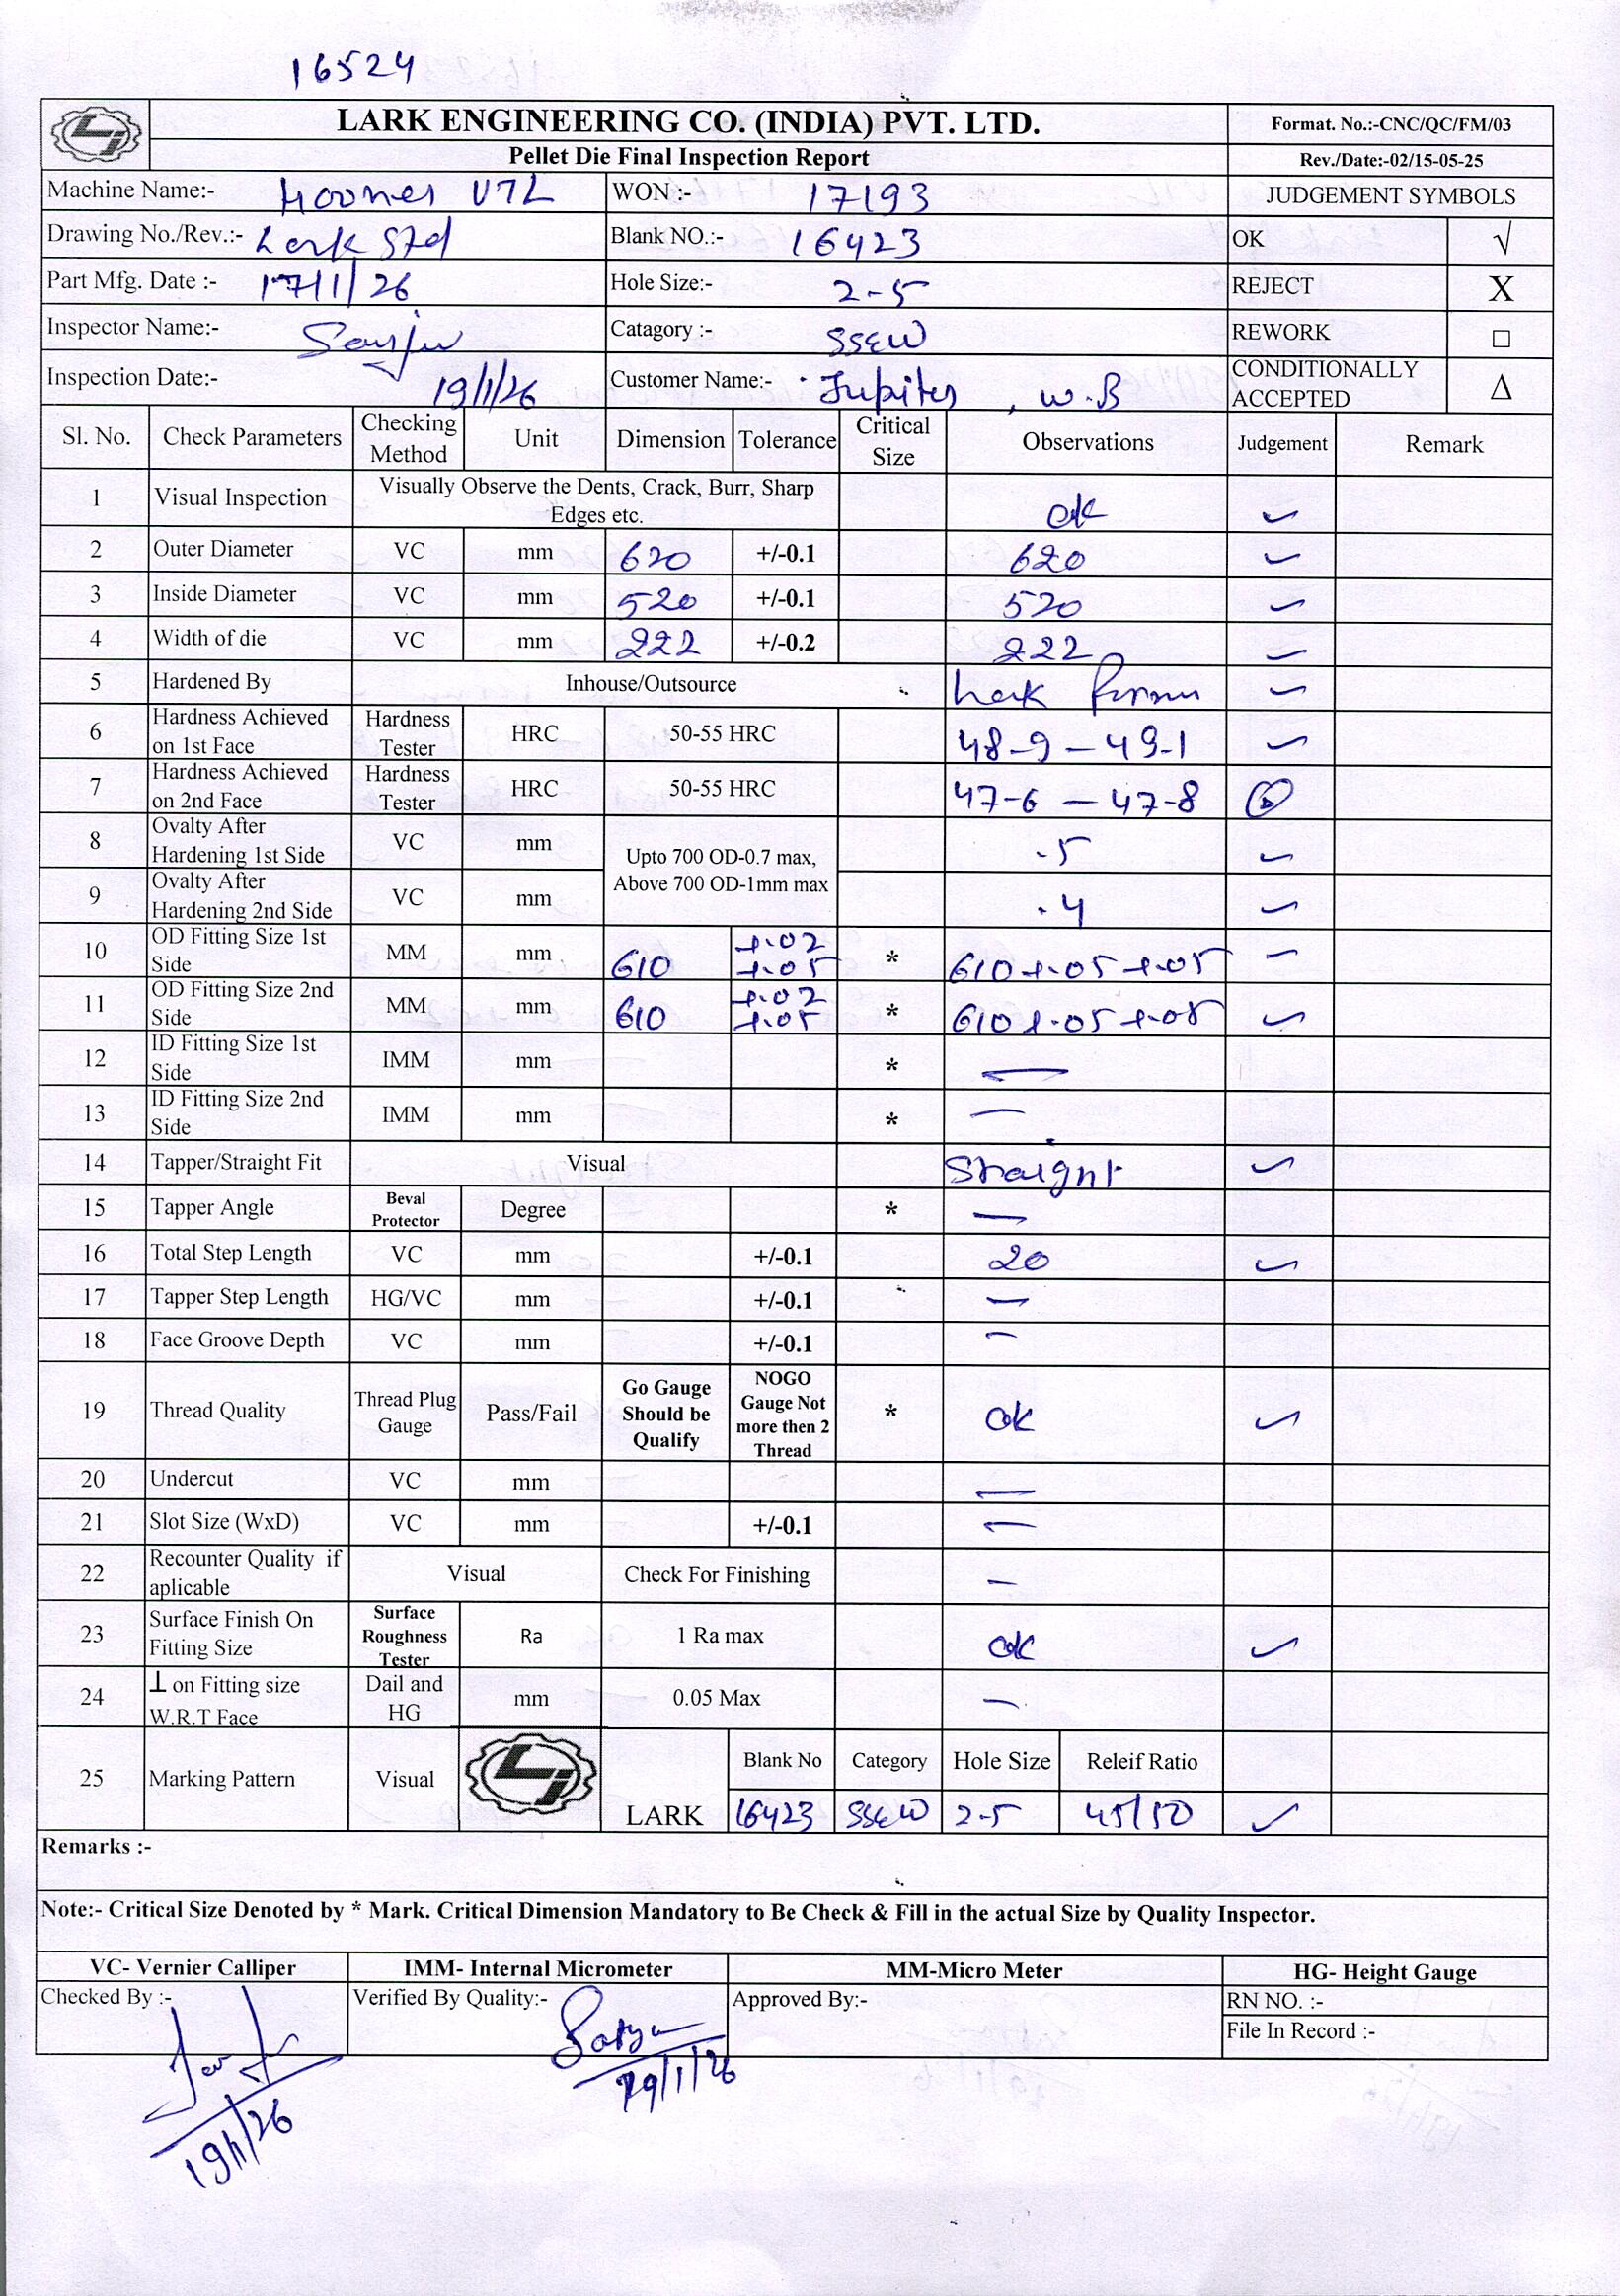 16524
LARK ENGINEERING CO. (INDIA) PVT. LTD.
Format. No.:-CNC/QC/FM/03
Pellet Die Final Inspection Report
Rev./Date:-02/15-05-25
Machine Name:- VTL WON :- 17193 JUDGEMENT SYMBOLS
Drawing No./Rev.:- Lark Std Blank NO.:- 16423 OK √
Part Mfg. Date :- 17/1/26 Hole Size:- 2-5 REJECT X
Inspector Name:- Catagory :- SSEW REWORK □
Inspection Date:- 19/1/26 Customer Name:- Jupiter, W.B CONDITIONALLY ACCEPTED Δ
Sl. No. Check Parameters Checking Method Unit Dimension Tolerance Critical Size Observations Judgement Remark
1 Visual Inspection Visually Observe the Dents, Crack, Burr, Sharp Edges etc. ok ✓
2 Outer Diameter VC mm 620 +/-0.1 620 ✓
3 Inside Diameter VC mm 520 +/-0.1 520 ✓
4 Width of die VC mm 222 +/-0.2 222 ✓
5 Hardened By Inhouse/Outsource Lark ✓
6 Hardness Achieved on 1st Face Hardness Tester HRC 50-55 HRC 48-9 – 49-1 ✓
7 Hardness Achieved on 2nd Face Hardness Tester HRC 50-55 HRC 47-6 – 47-8
8 Ovalty After Hardening 1st Side VC mm Upto 700 OD-0.7 max, Above 700 OD-1mm max .5 ✓
9 Ovalty After Hardening 2nd Side VC mm .4 ✓
10 OD Fitting Size 1st Side MM mm 610 +.02 +.05 * 610 +.05 +.05 ✓
11 OD Fitting Size 2nd Side MM mm 610 +.02 +.05 * 610 +.05 +.05 ✓
12 ID Fitting Size 1st Side IMM mm * —
13 ID Fitting Size 2nd Side IMM mm * —
14 Tapper/Straight Fit Visual Straight ✓
15 Tapper Angle Beval Protector Degree * —
16 Total Step Length VC mm +/-0.1 20 ✓
17 Tapper Step Length HG/VC mm +/-0.1 —
18 Face Groove Depth VC mm +/-0.1 —
19 Thread Quality Thread Plug Gauge Pass/Fail Go Gauge Should be Qualify NOGO Gauge Not more then 2 Thread * ok ✓
20 Undercut VC mm —
21 Slot Size (WxD) VC mm +/-0.1 —
22 Recounter Quality if aplicable Visual Check For Finishing —
23 Surface Finish On Fitting Size Surface Roughness Tester Ra 1 Ra max ok ✓
24 ⊥ on Fitting size W.R.T Face Dail and HG mm 0.05 Max —
25 Marking Pattern Visual LARK Blank No Category Hole Size Releif Ratio
16423 SSEW 2-5 45/50 ✓
Remarks :-
Note:- Critical Size Denoted by * Mark. Critical Dimension Mandatory to Be Check & Fill in the actual Size by Quality Inspector.
VC- Vernier Calliper IMM- Internal Micrometer MM-Micro Meter HG- Height Gauge
Checked By :- Verified By Quality:- Approved By:- RN NO. :-
File In Record :-
19/1/26
19/1/26